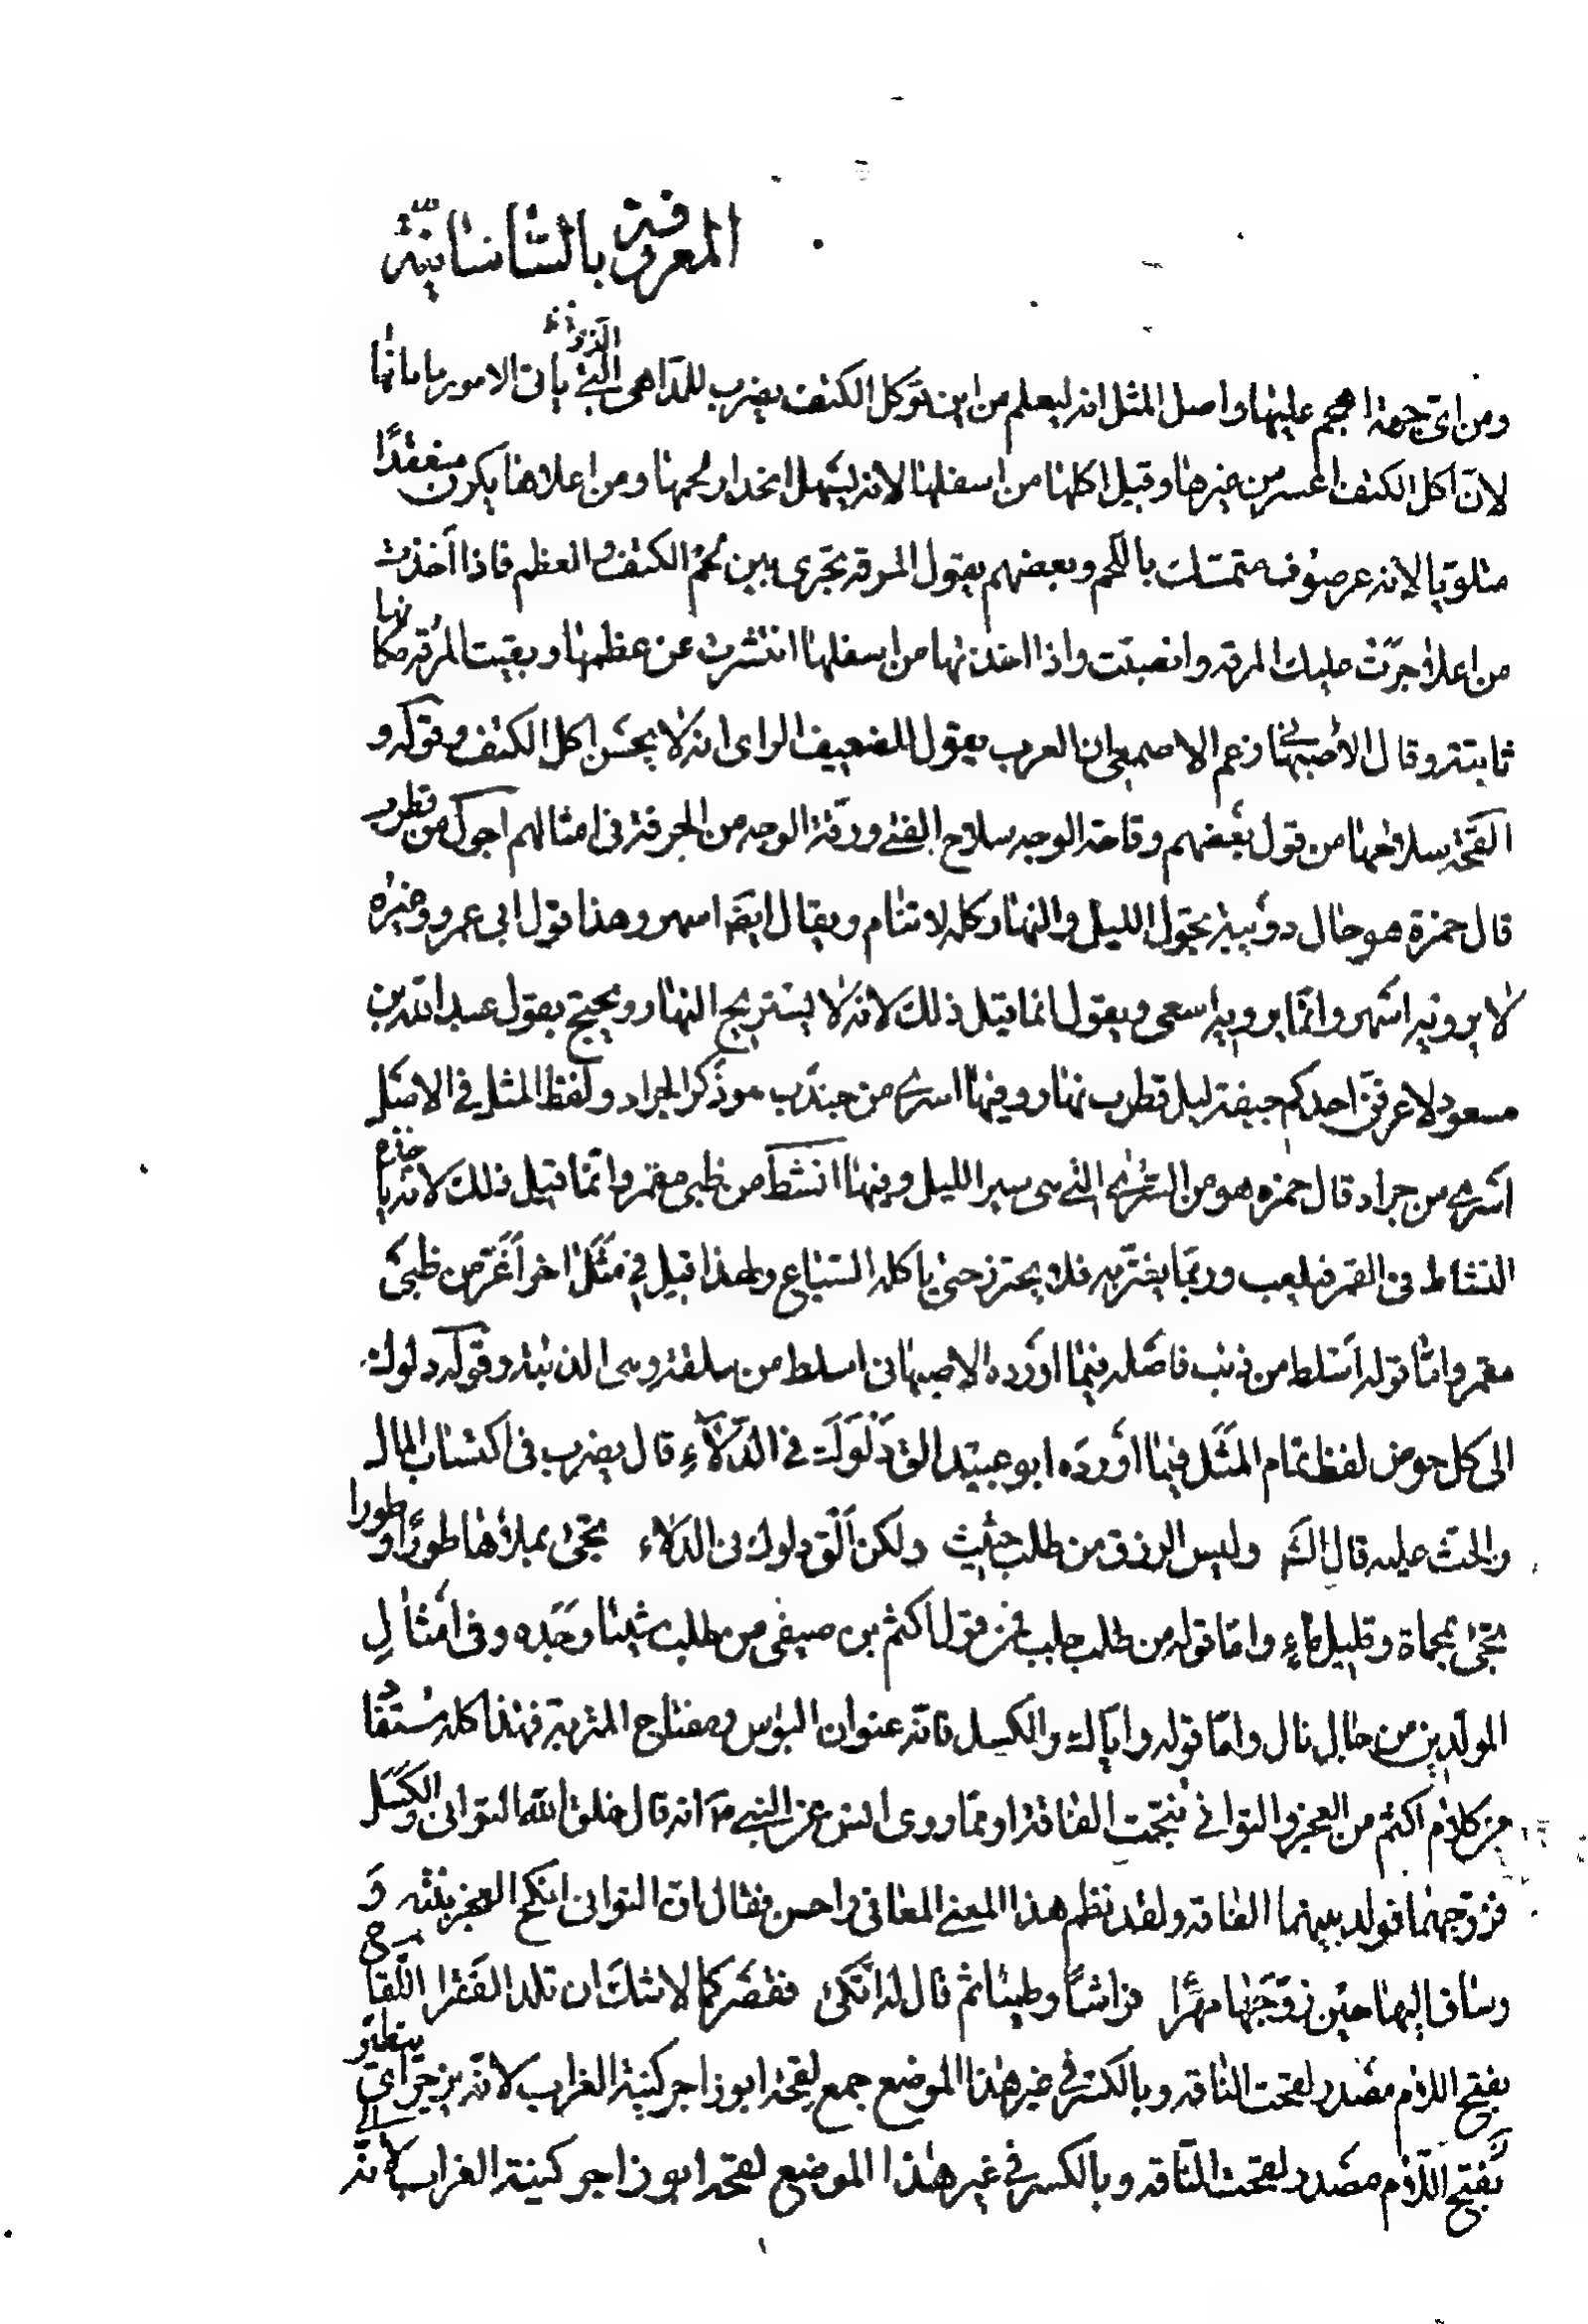 المعروفة بالساسانيّة
ومن اىّ جهة اهجم عليها واصل المثل انه ليعلم من اين توكل الكتف يضرب للداهى الذى ياتى الامور ماماتها
لانّ اكل الكتف اعسر من غيرها وقيل اكلها من اسفلها لانه يسهل انحدار لحمها ومن اعلاها يكون منعقدًا
متلويا لانه عرضوف متمسك باللحم وبعضهم يقول المرقه تجرى بين لحم الكتف والعظم فاذا اخذت
من اعلا جرّت عليك المرقه وانصبت واذا اخذتها من اسفلها انتشرت عن عظمها وبقيت المرقه مكانها
ثابتة وقال الاصبهانى زعم الاصمعى ان العرب يقول للضعيف الراى انه لا يحسن اكل الكتف وقوله و
القحة سلاحها من قول بعضهم وقاحة الوجه سلاح الفتى ورقّة الوجه من الحرفة فى امثالهم اجول من قطرب
قال حمزة هو حال دويبة يجول الليل والنهار كله لا تنام ويقال ايضا اسهر وهذا قول ابى عمرو وغيره
لا يرويه اسهر وانّما يرويه اسعى ويقول انما قيل ذلك لانه لا يستريح النهار ويحتج بقول عبد الله بن
مسعود لا عرفنّ احدكم جيفة ليل قطرب نهار وفيها اسرى من جندب هو ذكر الجراد ولفظ المثل فى الاصل
اسرى من جراد قال حمزه هو من السّرى التى هى سير الليل وفيها انشط من ظبى مقمر وانّما قيل ذلك لانه ياخذه
النشاط فى القمر فيلعب وربّما يغترّ به فلا يحترز حتى ياكله السباع ولهذا قيل فى مثل اخر اغرّ من ظبى
مقمر وامّا قوله اسلط من ذئب فاصله فيما اورده الاصبهانى اسلط من سلقة وهى الذئبة وقوله دلوك
الى كل حوض لفظ تمام المثل فيما اورده ابو عبيد الق دلوك فى الدّلاءِ قال يضرب فى اكتساب المال
والحث عليه قال الشـ وليس الرزق من طلب حثيث ولكن الق دلوك فى الدلاء تجىء بملاها طورًا وطورا
تجىء بحماة وقليل ماءٍ وامّا قوله من طلب جلب فمن قول اكثم بن صيفى من طلب شيئا وجده وفى امثال
المولّدين من جال نال وامّا قوله وايّاك والكسل فانّه عنوان البؤس ومفتاح المتربة فهذا كله مستفاد
من كلام اكثم من العجز والتوانى نتجت الفاقة او ممّا روى انس عن النبى م انه قال خلق الله التوانى والكسل
فزوّجهما فولد بينهما الفاقه ولقد نظم هذا المعنى المعانى واحسن فقال انّ التوانى انكح العجز بنته وَ
وساق اليها حين زوّجها مهرًا فراشًا وطيئا ثم قال له اتّكى فقصر كما لا شك ان تلد الفقرا اللقاح
بفتح اللام مصدر لقحت الناقه وبالكسر فى غير هذا الموضع جمع لقحة ابو زاجر كنية الغراب لانّه يزجر اى يتطيّر
بفتح اللّام مصدر لقحت النّاقه وبالكسر فى غير هذا الموضع لقحه ابو زاجر كنية الغراب لانّه